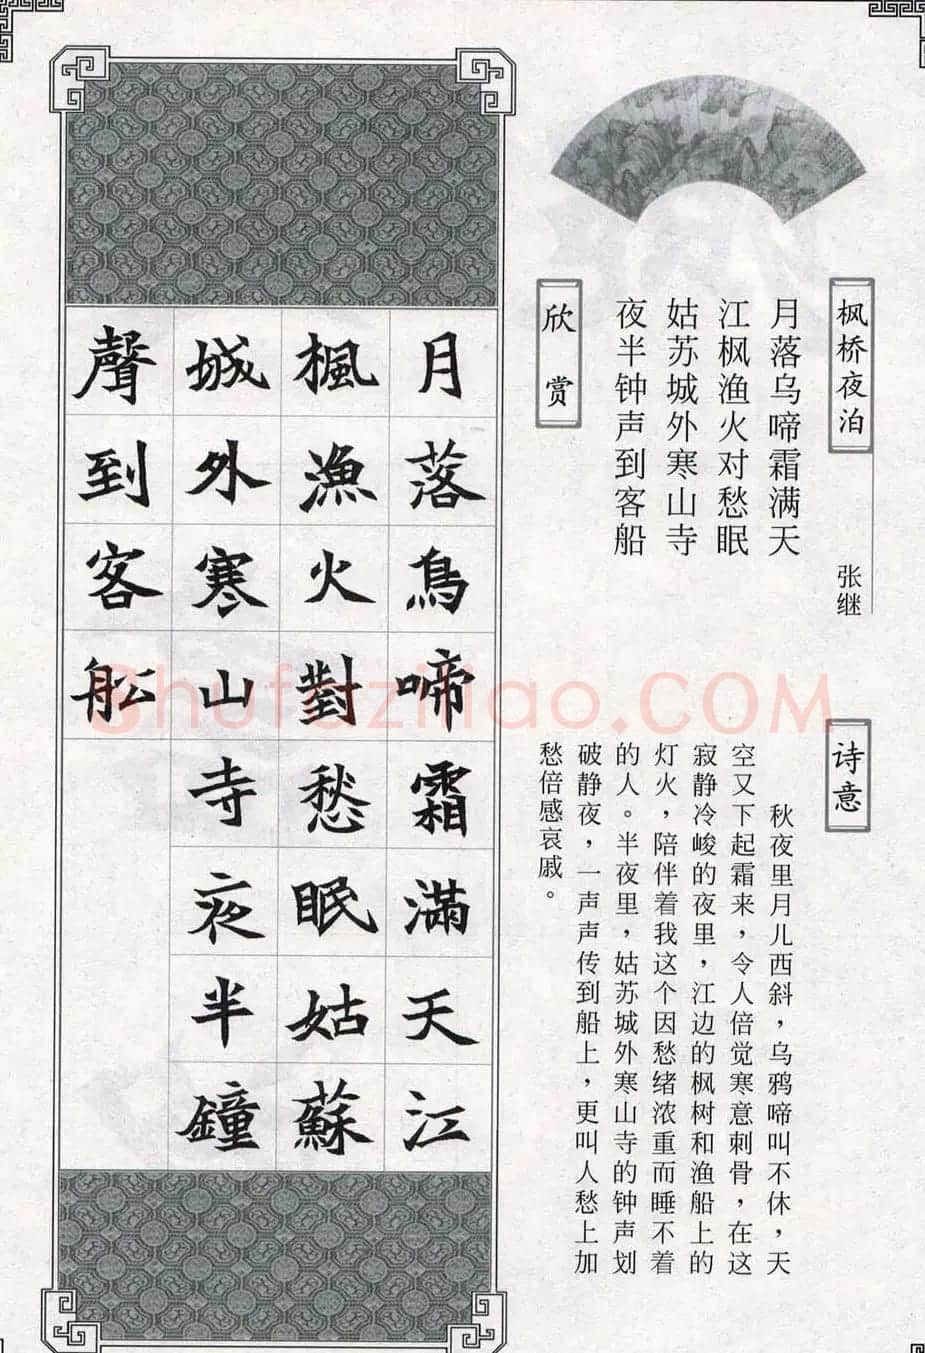 枫桥夜泊
张继
月落乌啼霜满天
江枫渔火对愁眠
姑苏城外寒山寺
夜半钟声到客船
欣赏
诗意
秋夜里月儿西斜，乌鸦啼叫不休，天
空又下起霜来，令人倍觉寒意刺骨，在这
寂静冷峻的夜里，江边的枫树和渔船上的
灯火，陪伴着我这个因愁绪浓重而睡不着
的人。半夜里，姑苏城外寒山寺的钟声划
破静夜，一声声传到船上，更叫人愁上加
愁倍感哀戚。
月落烏啼霜滿天江
楓漁火對愁眠姑蘇
城外寒山寺夜半鐘
聲到客船
Shufaziliao.COM